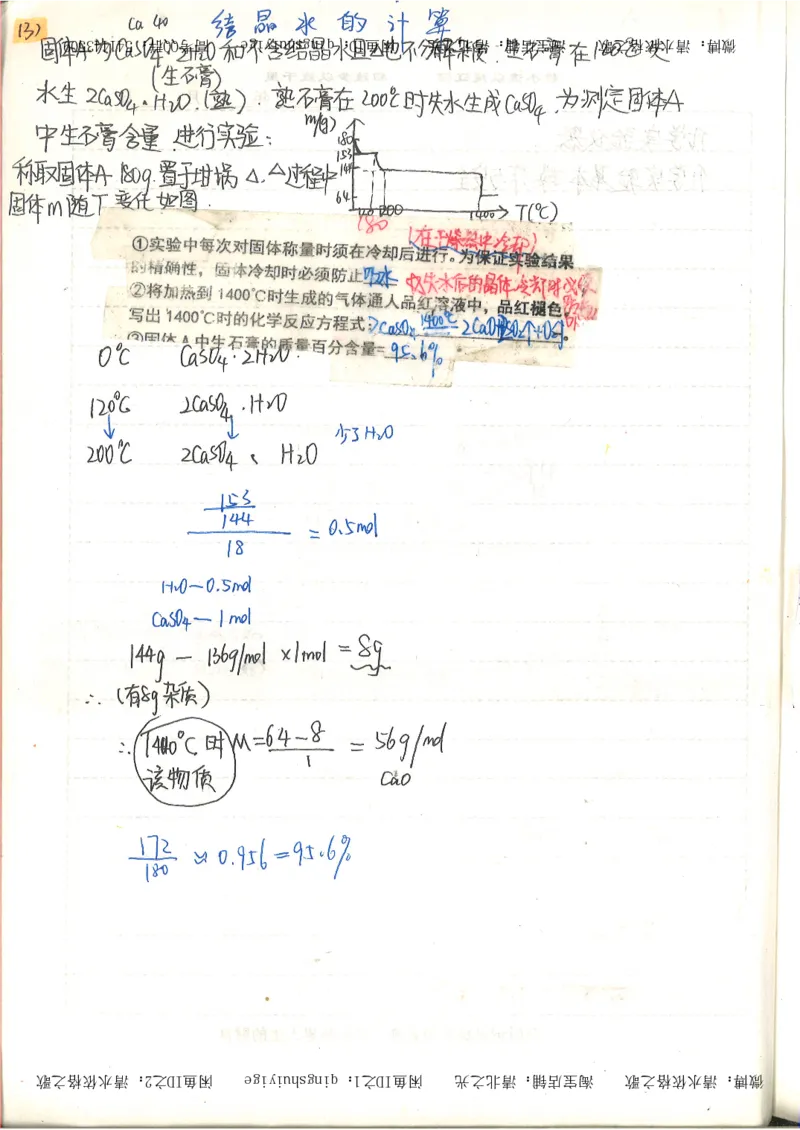 (3)
Ca 40
结晶水的计算
固体A为CaSO4·2H2O和不含结晶水且△也不分解杂质.
(生石膏)
水生2CaSO4·H2O(熟). 熟石膏在200℃时失水生成CaSO4.为测定固体A
中生石膏含量,进行实验:
称取固体A 180g.置于坩埚△.△过程中
固体m随T变化如图.
m(g)
180
153
144
64
120 200 1400 T(℃)
180
(在干燥器中冷却)
①实验中每次对固体称量时须在冷却后进行。为保证实验结果
的精确性,固体冷却时必须防止吸水
②将加热到1400℃时生成的气体通人品红溶液中,品红褪色。
写出1400℃时的化学反应方程式:2CaSO4 1400℃ 2CaO+2SO2↑+O2↑。
③固体A中生石膏的质量百分含量=95.6%
0℃ CaSO4·2H2O.
120℃ 2CaSO4·H2O
少了H2O
200℃ 2CaSO4、H2O
153
144
18
= 0.5mol
H2O—0.5mol
CaSO4—1mol
144g — 136g/mol ×1mol = 8g
∴ (有8g杂质)
∴ 1400℃时 M=64-8/1 = 56g/mol
该物质 CaO
172/180 ≈ 0.956 =95.6%
微博:清水依格之歌 淘宝店铺:清北之光 闲鱼ID之1:qingshuiyige 闲鱼ID之2:清水依格之歌